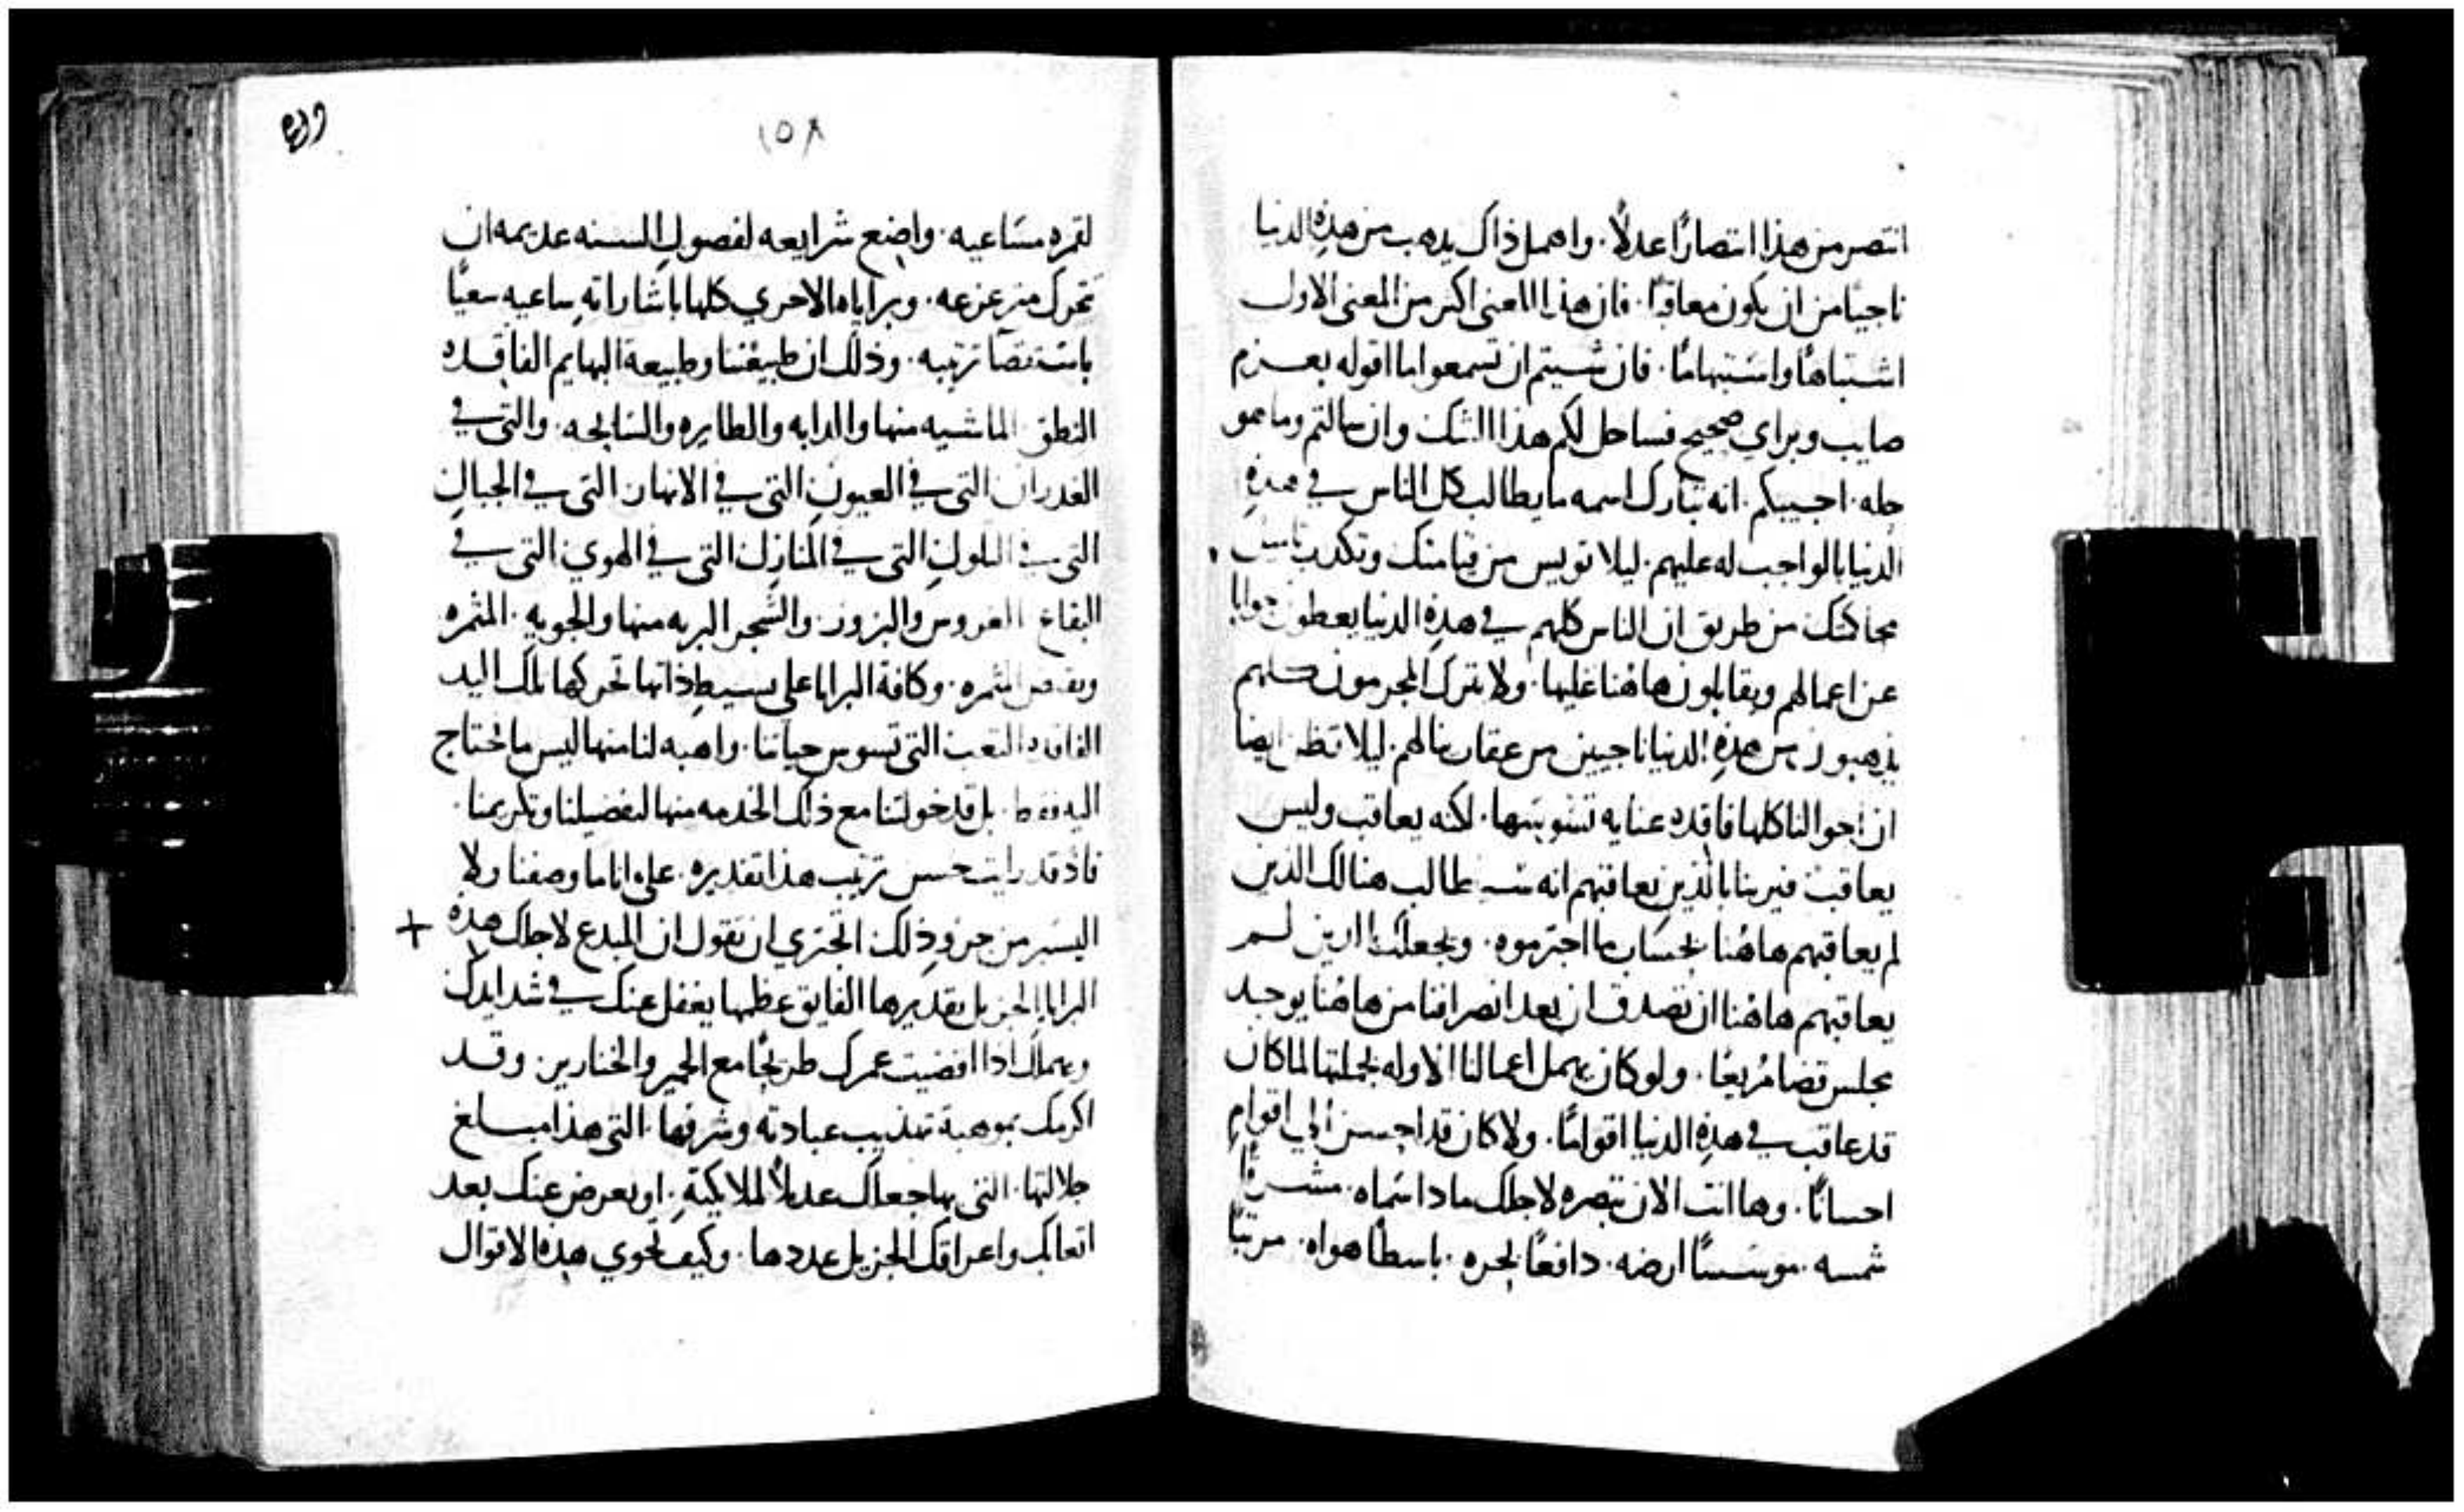 انتصر من هذا انتصارًا عدلاً. واهمل ذاك يذهب من هذه الدنيا
ناجيًا من ان يكون معاقبًا. فان هذا المعنى اكبر من المعنى الاول
اشتباهًا واستبهامًا. فان شيتم ان تسمعوا ما اقوله بعزم
صايب وبراي صحيح فساحل لكم هذا الشك وان سالتم وما هو
حله. اجيبكم. انه تبارك اسمه ما يطالب كل الناس في هذه
الدنيا بالواجب له عليهم. ليلا تويس من قيامتك وتكدر
محاكتك من طريق ان الناس كلهم في هذه الدنيا يعطون جوابا
عن اعمالهم ويقابلون هاهنا عليها. ولا يترك المجرمون كلهم
يذهبون من هذه الدنيا ناجيين من عقاب لهم. ليلا تظن ايضا
ان احوالنا كلها فاقده عنايه تسوسها. لكنه يعاقب وليس
يعاقب فيرينا بالذين يعاقبهم انه سيطالب هنالك الذين
لم يعاقبهم هاهنا بحساب ما اجترموه. ويجعلك بالذين لم
يعاقبهم هاهنا ان تصدق ان بعد انصرافنا من هاهنا يوجد
مجلس قضا مريعًا. ولو كان يهمل اعمالنا الاوله بجملتها لما كان
قد عاقب في هذه الدنيا اقوامًا. ولا كان قد احسن الي اقوام
احسانًا. وها انت الان تبصره لاجلك مادا سماه. مشرقًا
شمسه. موسسًا ارضه. دافعًا بحره. باسطًا هواه. مرتبًا
١٥٨
لقمره مساعيه. واضع شرايعه لفصول السنه عديمه ان
تتحرك متزعزعه. وبراياه الاخري كلها باشاراته ساعيه سعيًا
باستقصا ترتيبه. وذلك ان طبيعتنا وطبيعة البهايم الفاقده
النطق الماشيه منها والدابه والطايره والسابحه. والتي في
الغدران التي في العيون التي في الانهار التي في الجبال
التي في التلول التي في المنازل التي في الهوي التي في
البقاع الغروس والبزور والشجر البريه منها والجويه. المثمره
وبغير المثمره. وكافة البرايا على بسيط ذاتها تحركها تلك اليد
الفاقده التعب التي تسوس حياتنا. واهبه لنا منها ليس ما نحتاج
اليه فقط. بل قد خولتنا مع ذلك الخدمه منها لتفضيلنا وتكريمنا.
فاذ قد رايت حسن ترتيب هذا تقديره. على اننا ما وصفنا ولا
اليسير من جزو ذلك اتجتري ان تقول ان المبدع لاجلك هذه
+
البرايا الجزيل تقديرها الفايق عظمها يغفل عنك في شدايدك
ويهملك اذا افضيت عمرك طريحًا مع الحمير والخنازير. وقد
اكرمك بموهبة تهذيب عبادته وشرفها. التي هذا مبلغ
جلالتها. التي بها جعلك عديلاً لملايكته. او يعرض عنك بعد
اتعابك واعراقك الجزيل عددها. وكيف تحوي هذه الاقوال